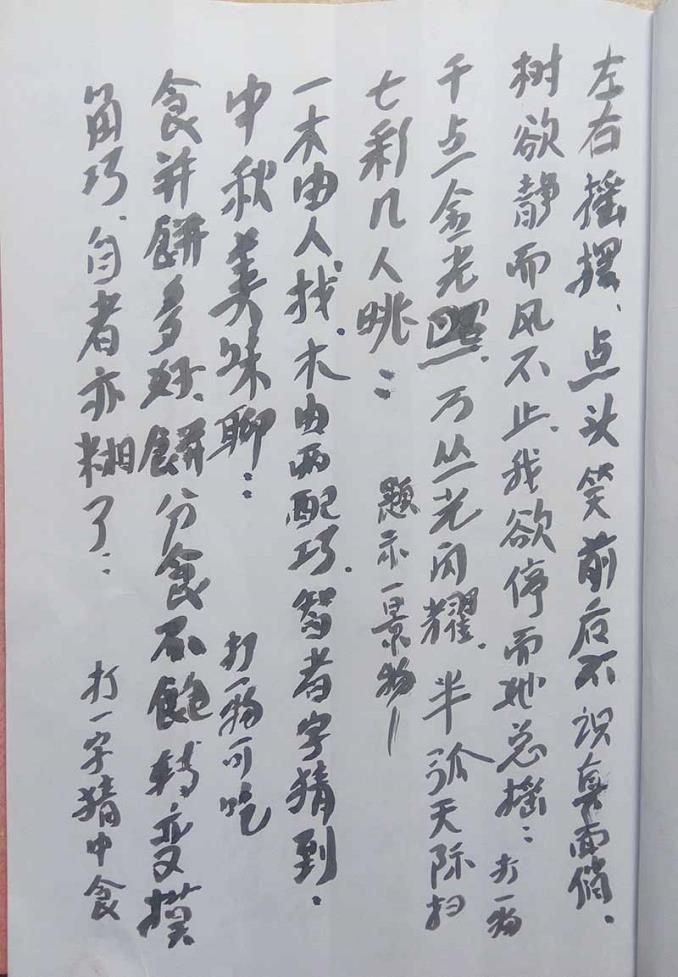 左右摇摆、点头笑前后不识真面俏、
树欲静而风不止、我欲停而她总摇：打一物
千点金光照、万丛光闪耀、半弧天际扫
七彩几人眺：题示一景物
一木由人找、木由两配巧、智者字猜到.
中秋美味聊：打一物可吃
食并餅多好、餅分食不飽转变摸
角巧、自者亦糊了：打一字猜中食